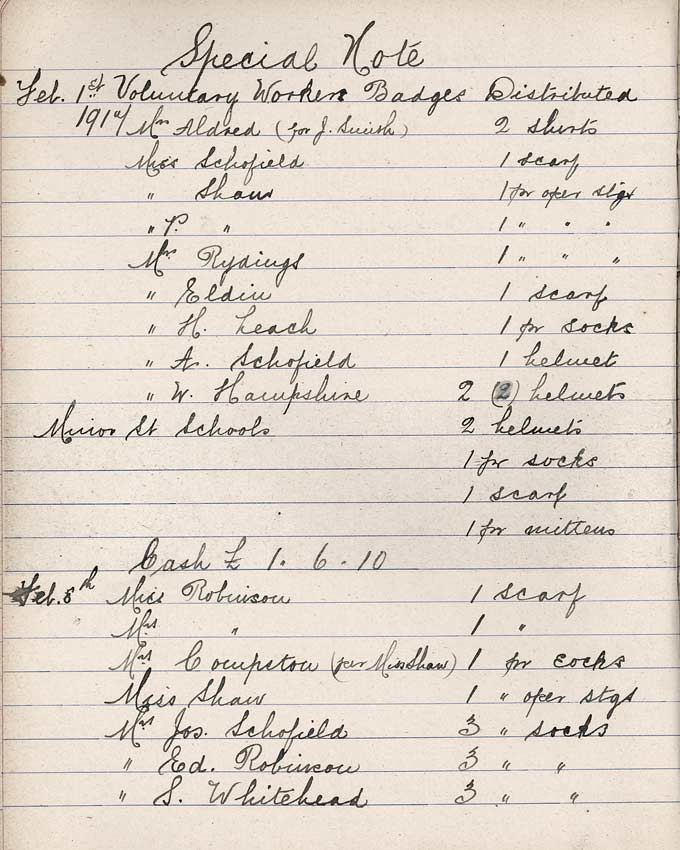 Special Note
Feb. 1st Voluntary Workers Badges Distributed
1917 Mrs Aldred (for J. Smith) 2 shirts
Miss Schofield 1 scarf
" Shaw 1 pr oper stgs
" P. " 1 " " "
Mrs Rydings 1 " " "
" Eldin 1 scarf
" H. Leach 1 pr socks
" A. Schofield 1 helmet
" W. Hampshire 2 (2) helmets
Minor St Schools 2 helmets
1 pr socks
1 scarf
1 pr mittens
Cash £ 1. 6. 10
Feb. 8th Miss Robinson 1 scarf
Mrs " 1 "
Mrs Compston (per Miss Shaw) 1 pr socks
Miss Shaw 1 " oper stgs
Mrs Jos. Schofield 3 " socks
" Ed. Robinson 3 " "
" S. Whitehead 3 " "